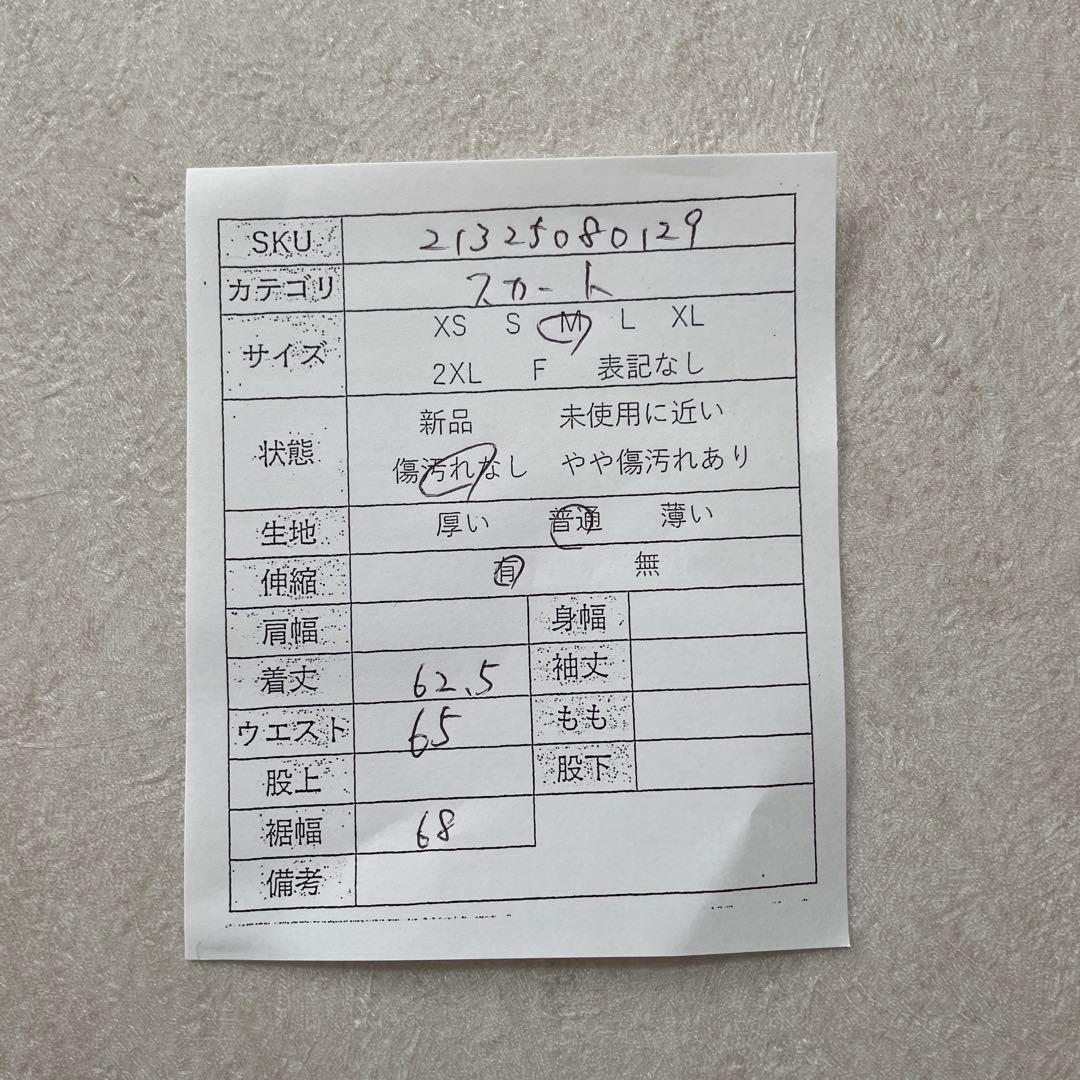 SKU 21325080129
カテゴリ スカート
サイズ XS S M L XL
2XL F 表記なし
状態 新品 未使用に近い
傷汚れなし やや傷汚れあり
生地 厚い 普通 薄い
伸縮 有 無
肩幅 身幅
着丈 62.5 袖丈
ウエスト 65 もも
股上 股下
裾幅 68
備考